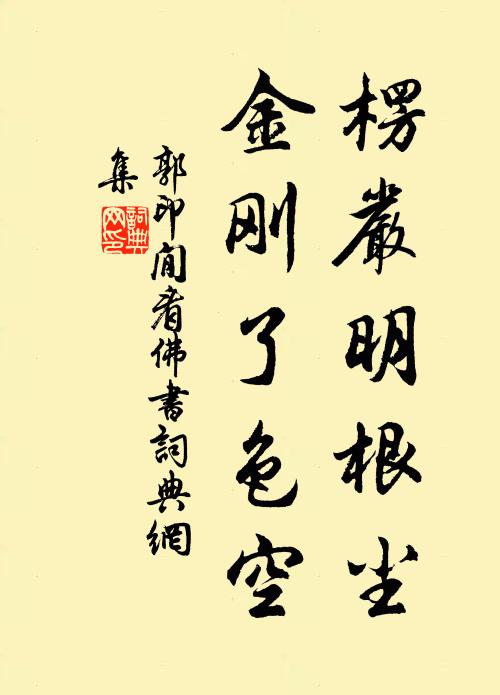 楞嚴明根尘
金刚了色空
郭印閒看佛書詞典網
集
詞典
网印